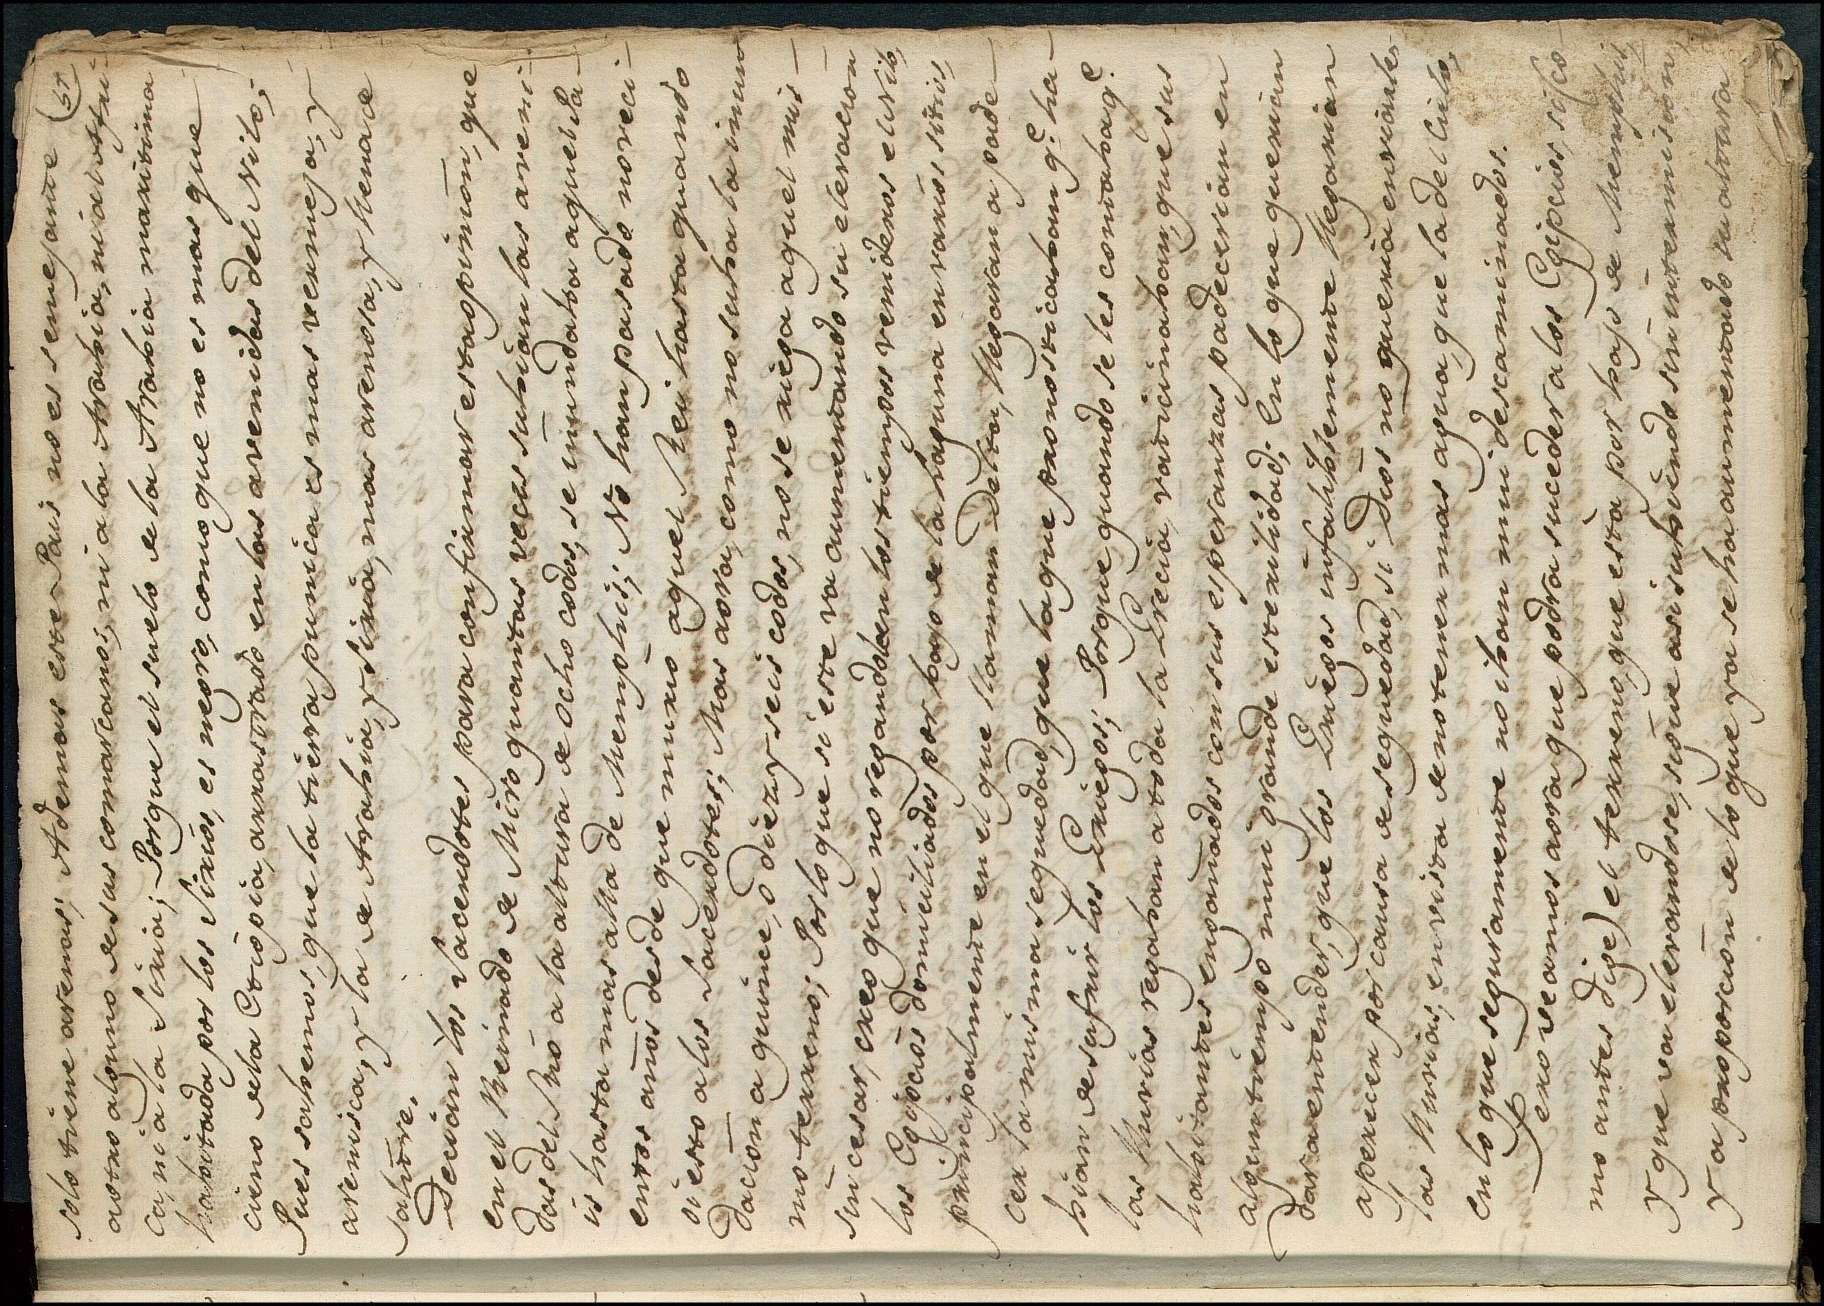 57
solo tiene arenas; Ademas este Pais no es semejante
a otro alguno de sus comarcanos, ni a la Arabia, ni al Afri-
ca, ni a la Siria; Porque el suelo de la Arabia maritima
habitada por los Sirios, es negro, como que no es mas que
cieno de la Etiopia, arrastrado en las avenidas del Nilo;
Pues sabemos, que la tierra punica es mas vermeja, y
arenisca, y la de Arabia, y Siria, mas arenosa, y menos
salitre.
Decian los Sacerdotes para confirmar esta opinion, que
en el Reinado de Miro quantas veces subian las aveni-
das del Rio a la altura de ocho codos, se inundaba aquel Pa-
is hasta mas alla de Memphis; No han pasado noveci-
entos años desde que murio aquel Rei hasta quando
oi esto a los Sacerdotes; Mas aora, como no suba la inun-
dacion a quince, o diez y seis codos, no se riega aquel mis-
mo terreno; Por lo que si este va aumentando su elevacion
sin cesar, creo que no regandolo en los tiempos venideros el Nilo,
los Egipcios domiciliados por bajo de la laguna en varios sitios,
principalmente en el que llaman Delta, llegaran a pade-
cer la misma sequedad, que la que pronosticaban qe. ha-
bian de sufrir los Griegos; Porque quando se les contaba qe.
las lluvias regaban a toda la Grecia, vaticinaban, que sus
habitantes engañados con sus esperanzas padecerian en
algun tiempo mui grande esterilidad; En lo que querian
dar a entender, que los Griegos infaliblemente llegarian
a perecer por causa de sequedad, si Dios no queria enviarles
las lluvias, en vista de no tener mas agua, que la del Cielo,
en lo que seguramente no iban mui descaminados.
Pero veamos aora que podra suceder a los Egipcios, si (co-
mo antes dige) el terreno, que está por bajo de Memphis,
y que va elevandose, sigue asi subiendo sin intermision
y a proporcion de lo que ya se ha aumentado su altura